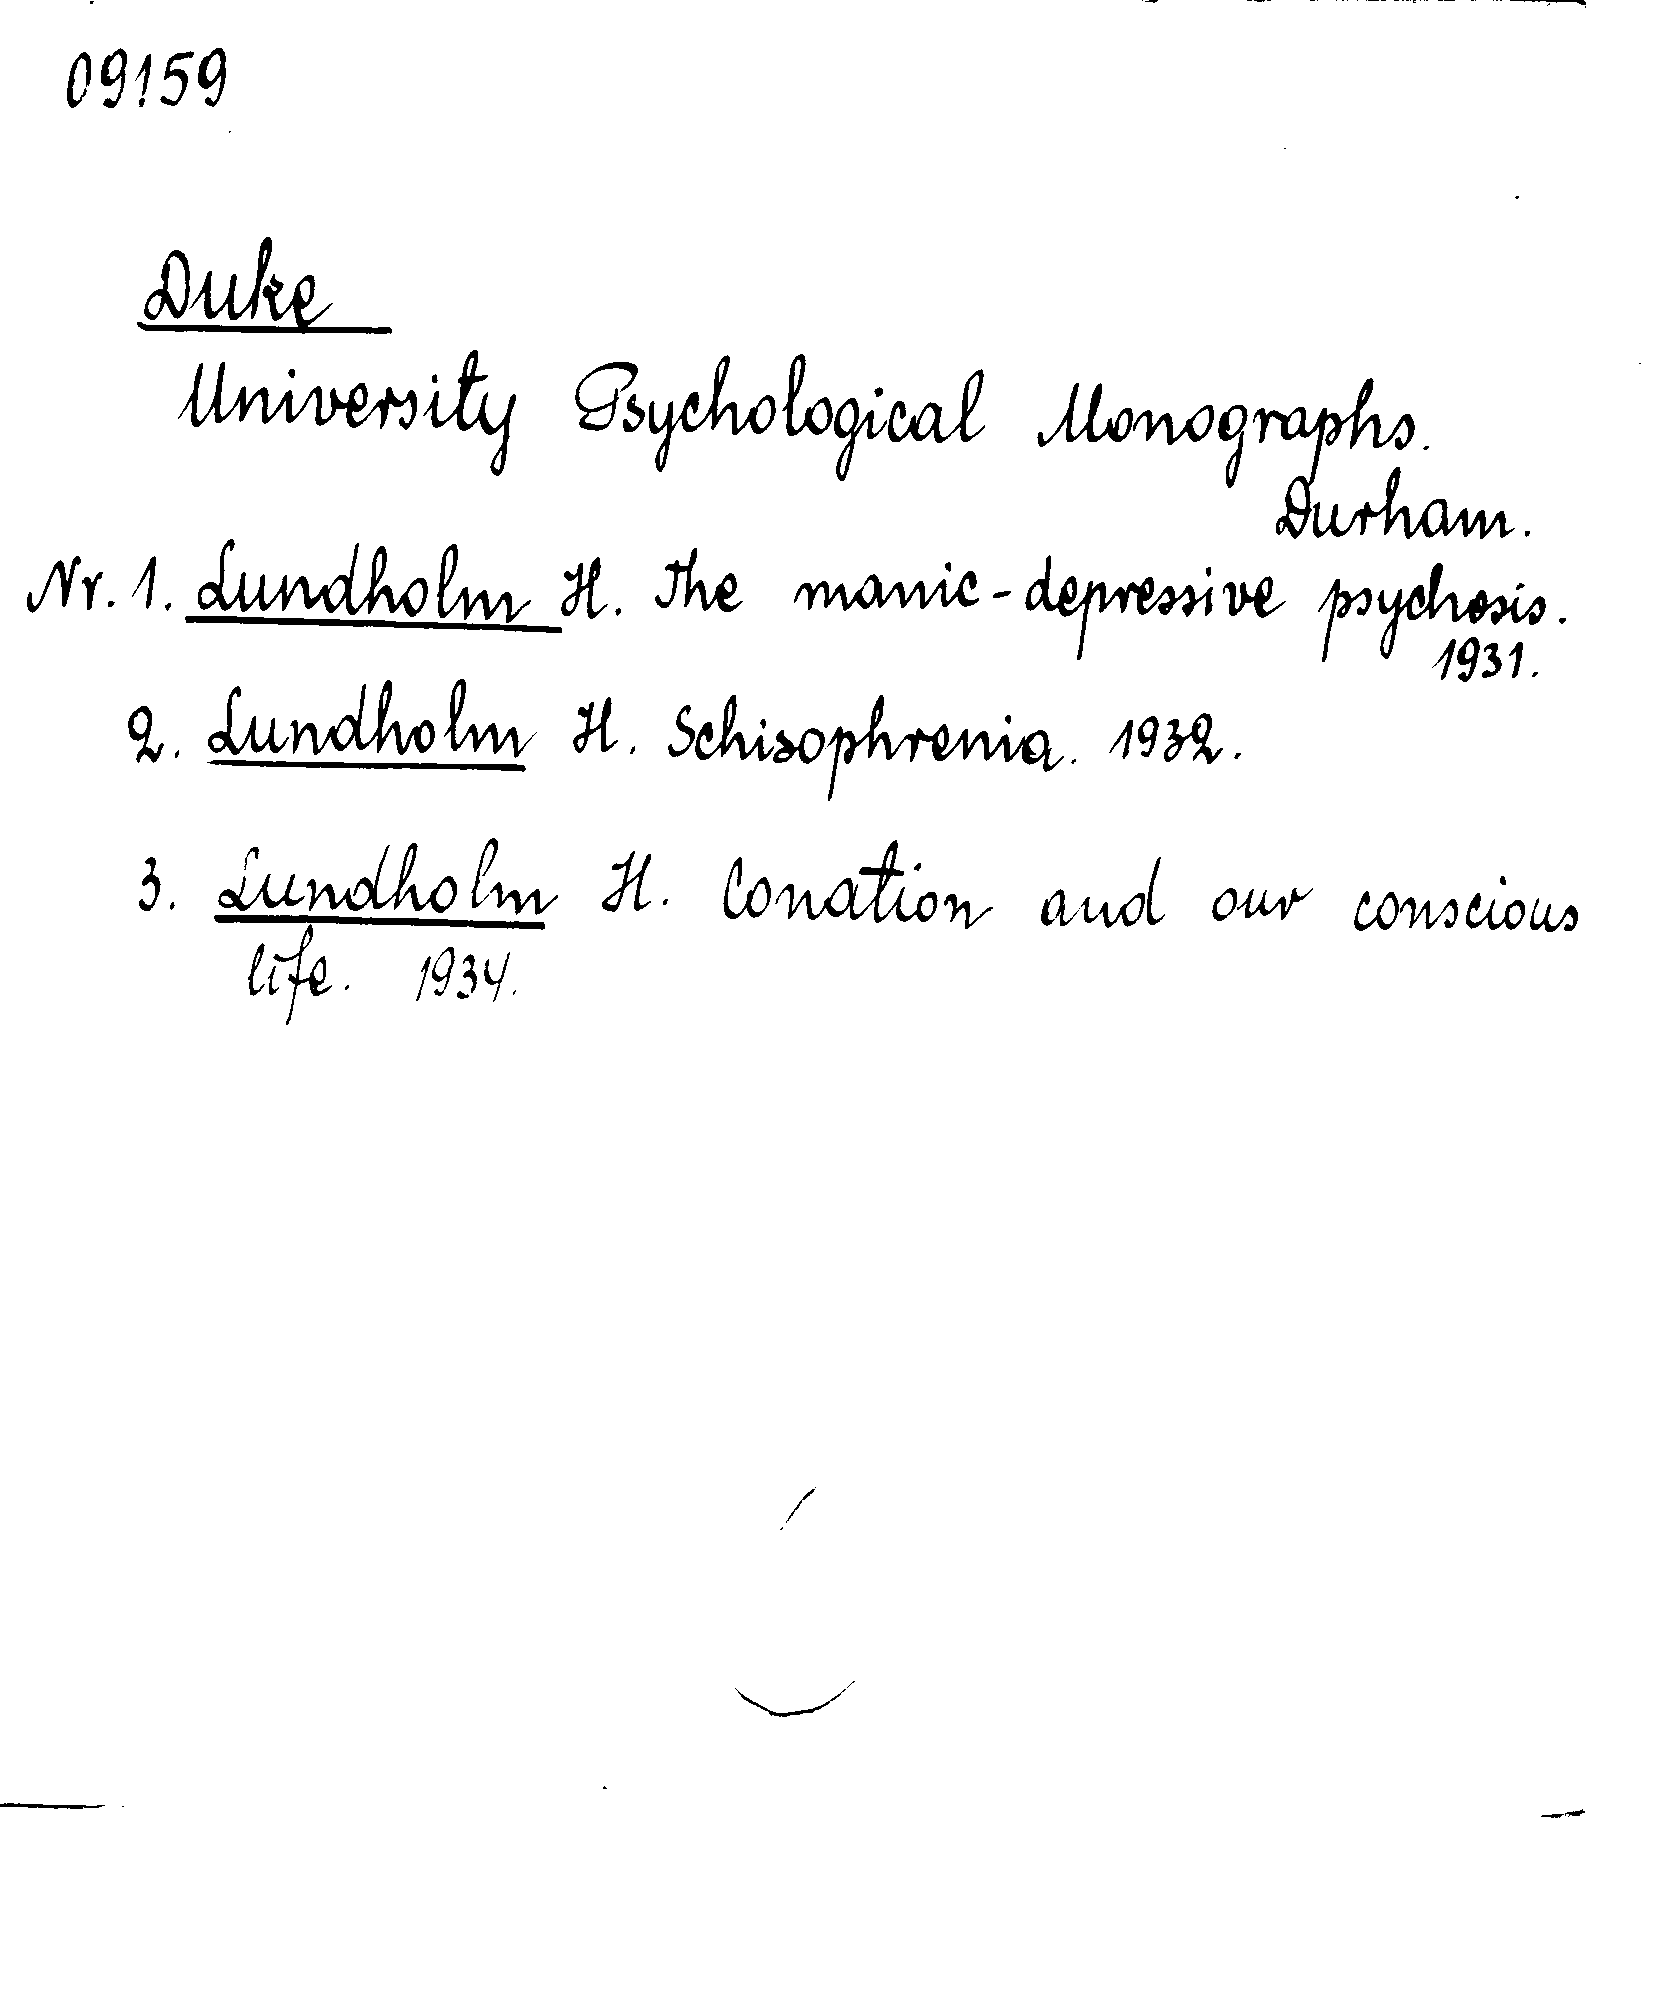 09159
Duke
University Psychological Monographs.
Durham.
Nr. 1. Lundholm H. The manic-depressive psychosis.
1931.
2. Lundholm H. Schisophrenia. 1932.
3. Lundholm H. Conation and our conscious
life. 1934.